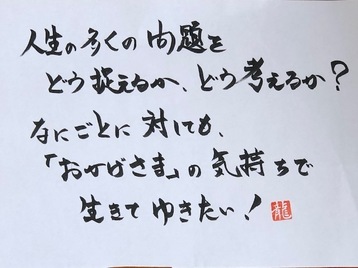 人生の多くの問題を
どう捉えるか、どう考えるか？
なにごとに対しても、
「おかげさま」の気持ちで
生きてゆきたい！ 龍